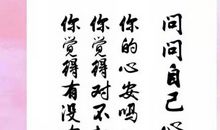 问问自己
你的心安吗
你觉得对不
你觉得有没